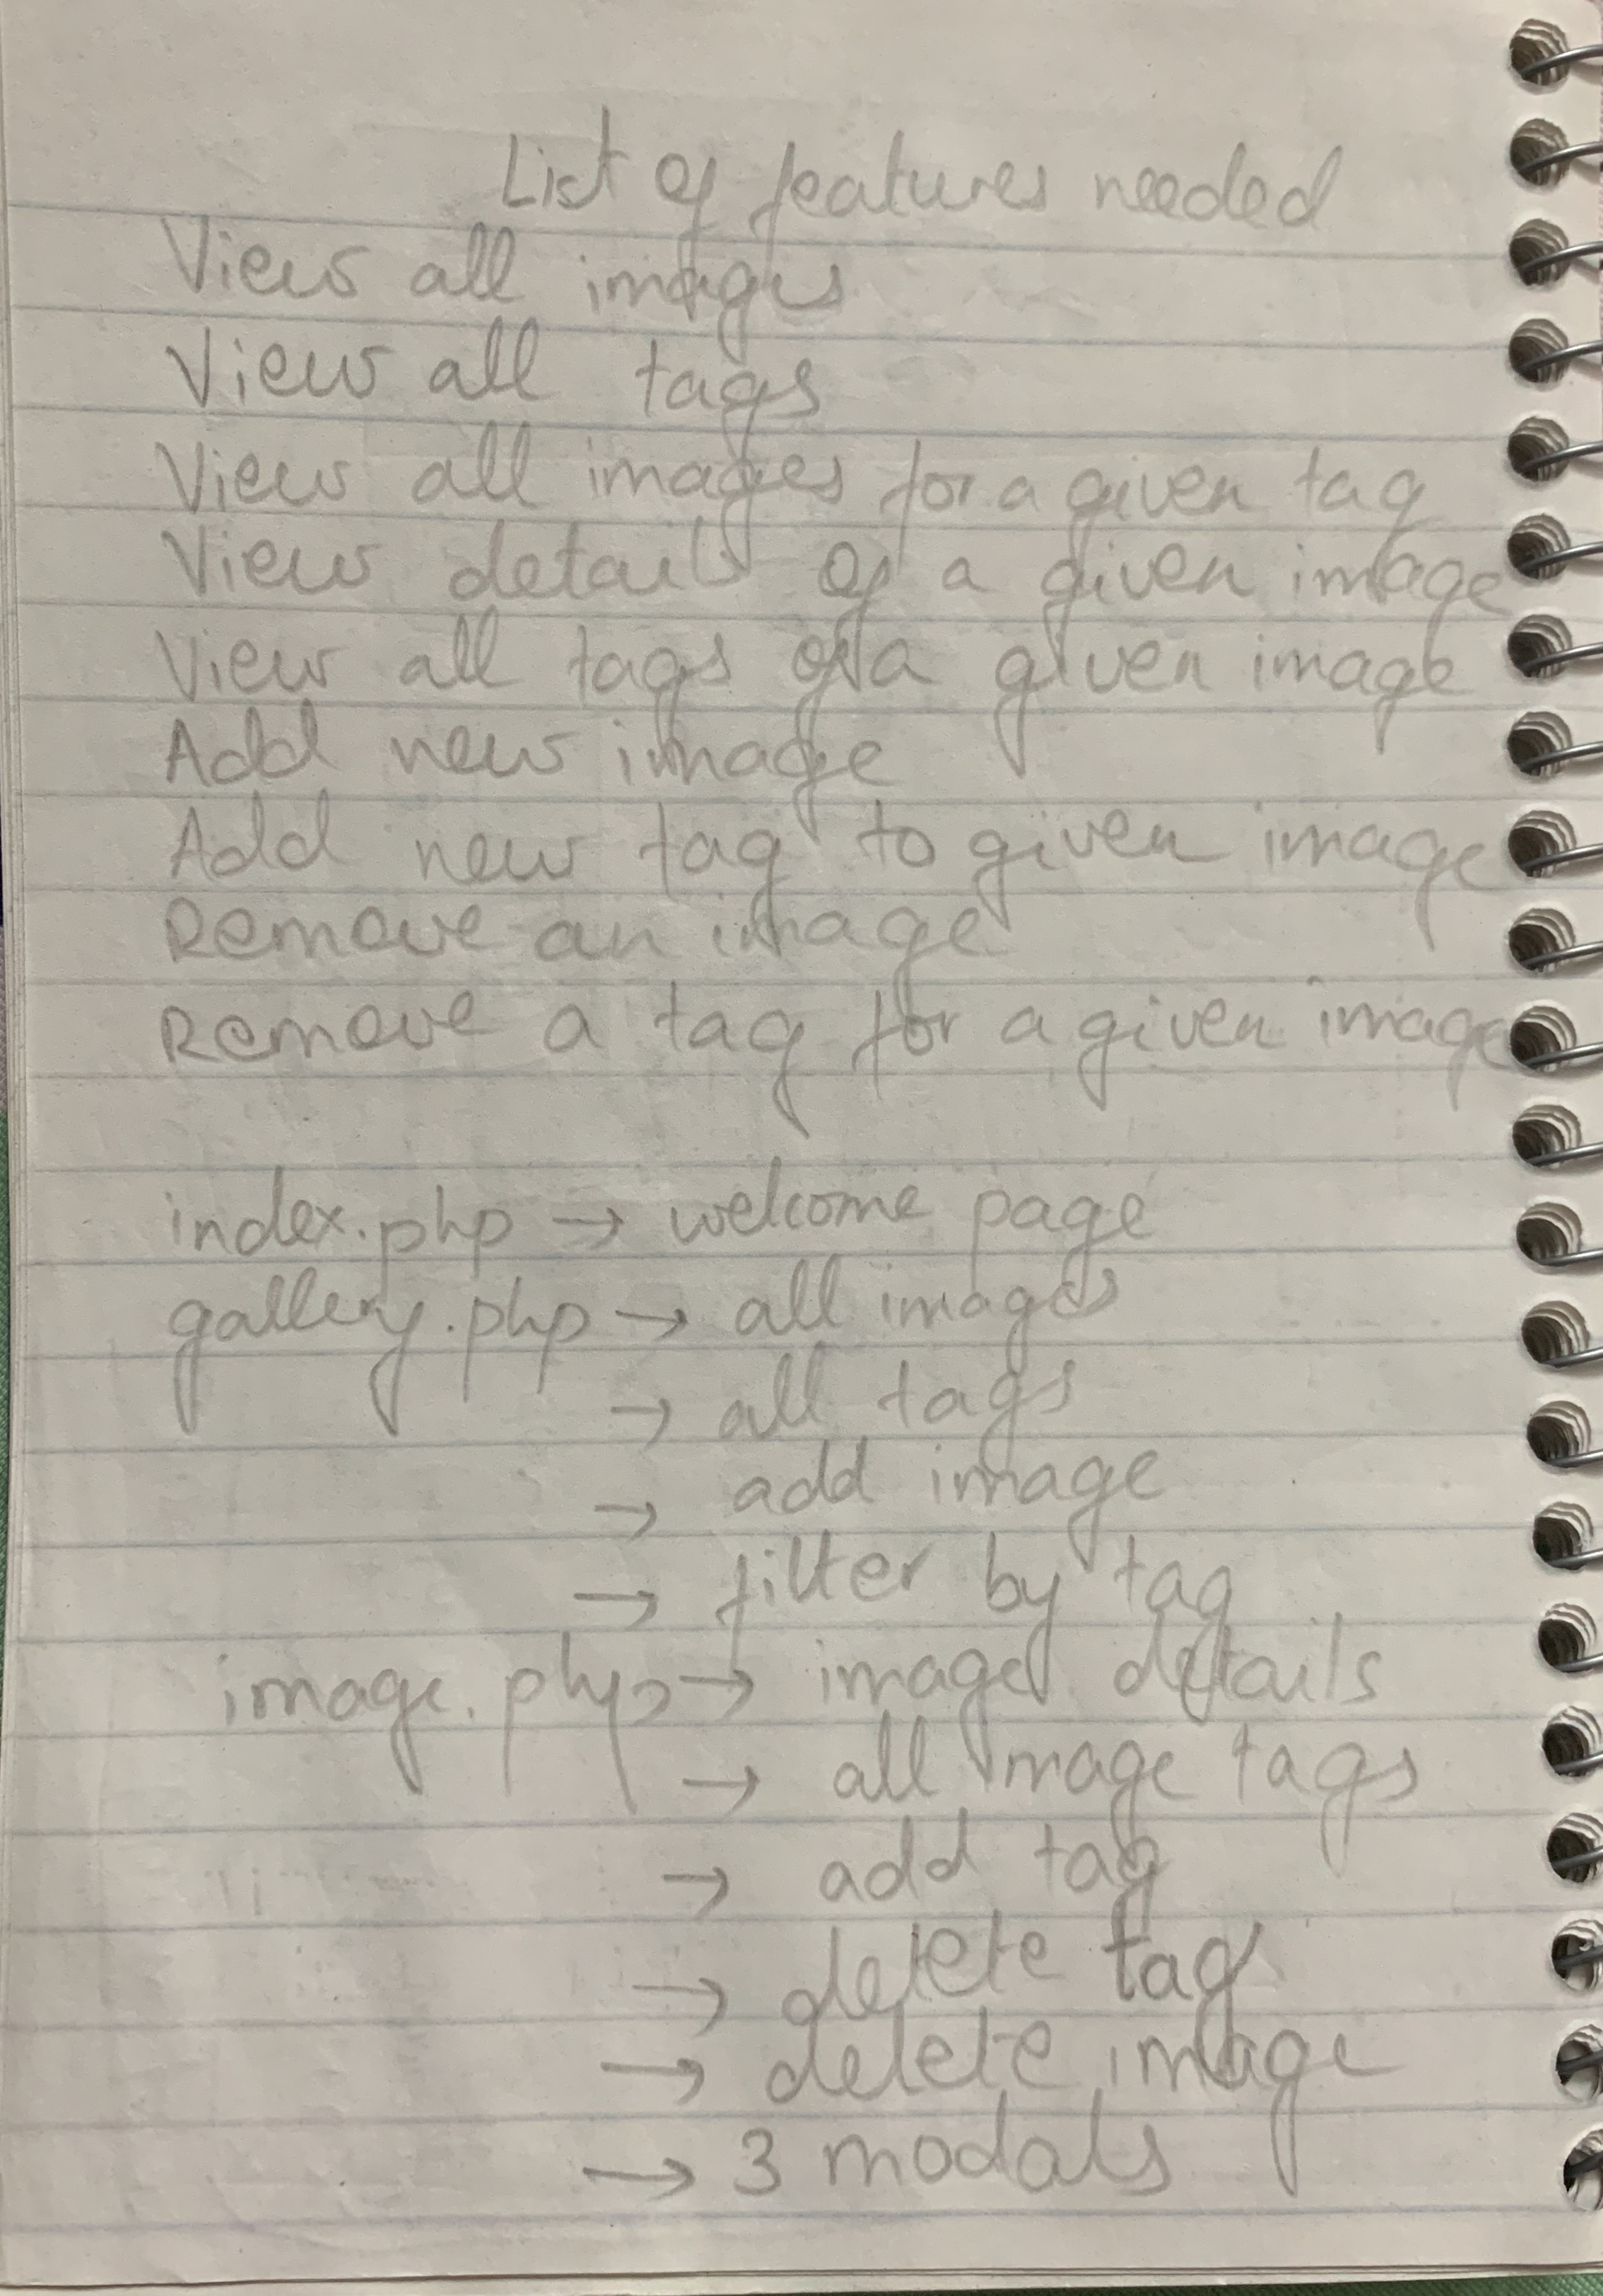 List of features needed
View all images
View all tags
View all images for a given tag
View details of a given image
View all tags of a given image
Add new image
Add new tag to given image
Remove an image
Remove a tag for a given image
index.php → welcome page
gallery.php → all images
→ all tags
→ add image
→ filter by tag
image.php → image details
→ all image tags
→ add tag
→ delete tag
→ delete image
→ 3 modals